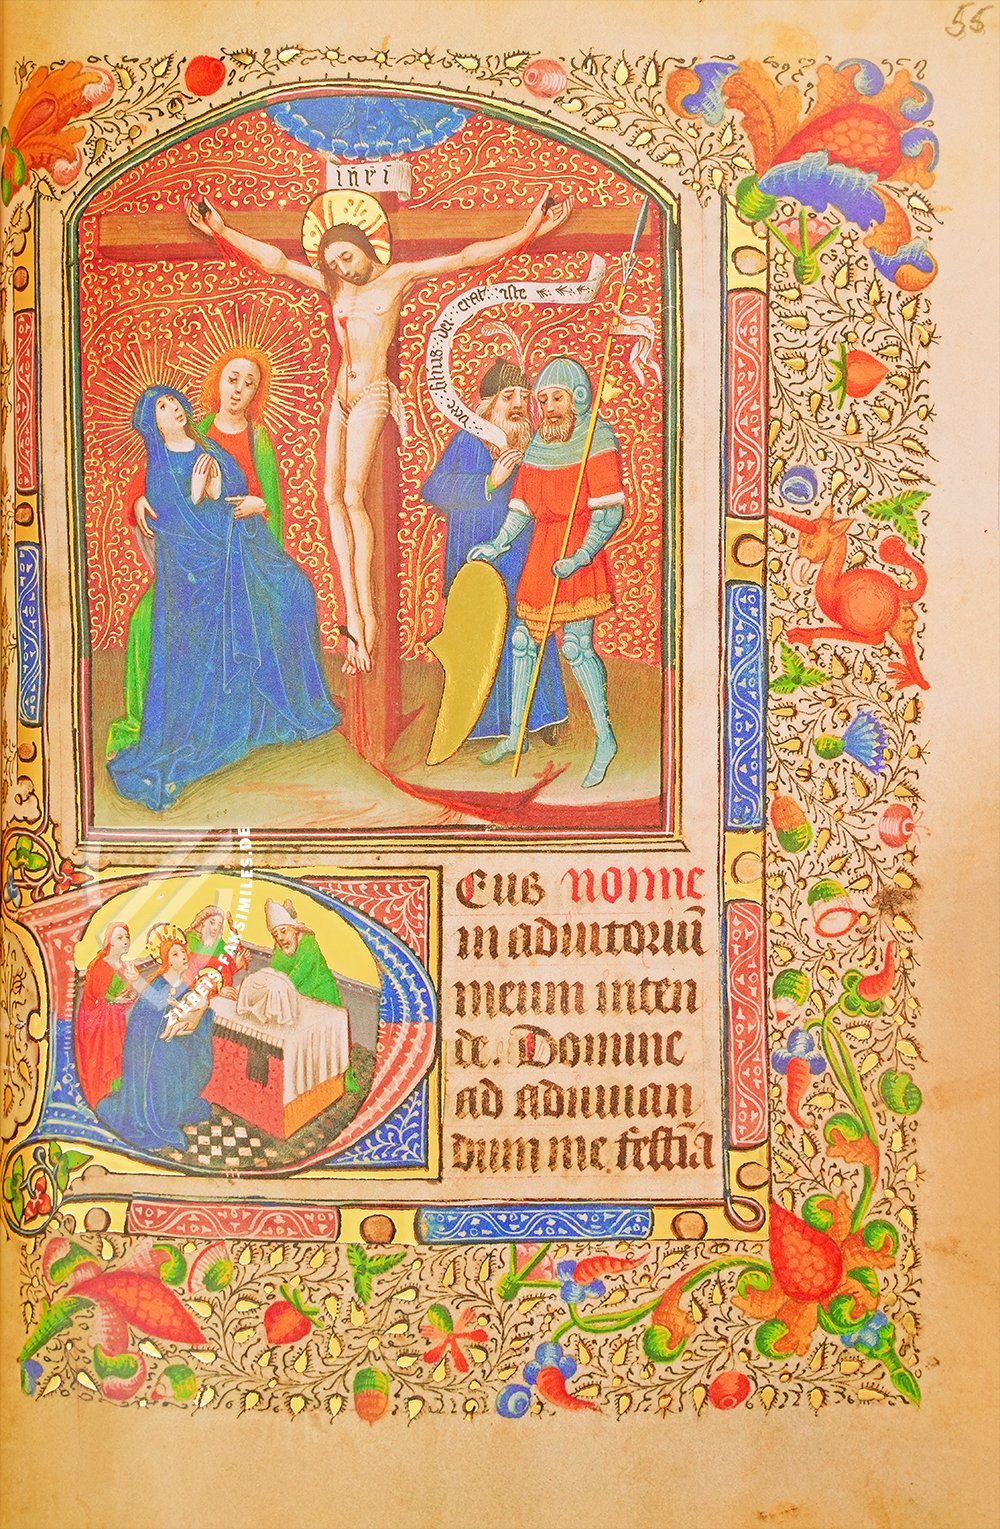 55
inri
vere filius dei erat iste
Eus nonne
in adiutoriū
meum inten
de. Domine
ad adiuuan
dum me festīa
ZIEREIS FAKSIMILES.DE